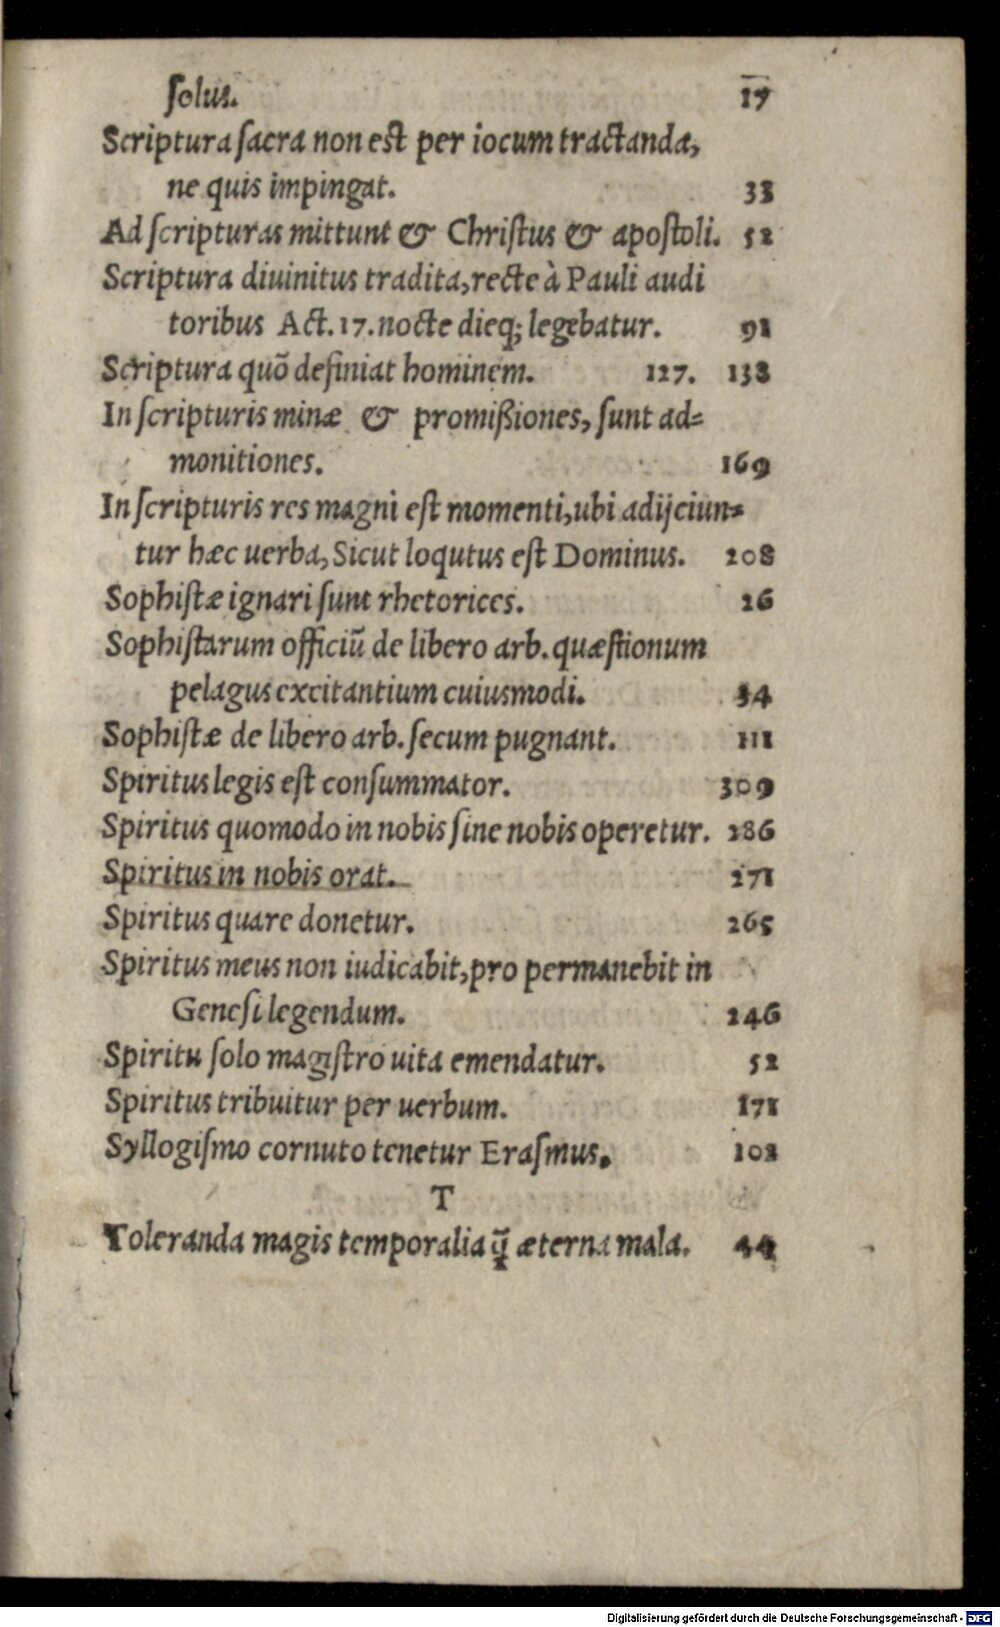 ſolus. 17
Scriptura ſacra non est per iocum tractanda,
ne quis impingat. 33
Ad ſcripturas mittunt & Chriſtus & apoſtoli. 52
Scriptura diuinitus tradita, recte à Pauli audi
toribus Act. 17. nocte dieq; legebatur. 91
Scriptura quõ definiat hominem. 127. 138
In ſcripturis minæ & promißiones, ſunt ad=
monitiones. 169
In ſcripturis res magni eſt momenti, ubi adijciun=
tur hæc uerba, Sicut loqutus eſt Dominus. 208
Sophiſtæ ignari ſunt rhetorices. 26
Sophiſtarum officiũ de libero arb. quæſtionum
pelagus excitantium cuiusmodi. 34
Sophiſtæ de libero arb. ſecum pugnant. 111
Spiritus legis eſt conſummator. 309
Spiritus quomodo in nobis ſine nobis operetur. 286
Spiritus in nobis orat. 271
Spiritus quare donetur. 265
Spiritus meus non iudicabit, pro permanebit in
Geneſi legendum. 246
Spiritu ſolo magiſtro uita emendatur. 52
Spiritus tribuitur per uerbum. 171
Syllogiſmo cornuto tenetur Eraſmus. 102
T
Toleranda magis temporalia q̃ æterna mala. 44
Digitalisierung gefördert durch die Deutsche Forschungsgemeinschaft - DFG